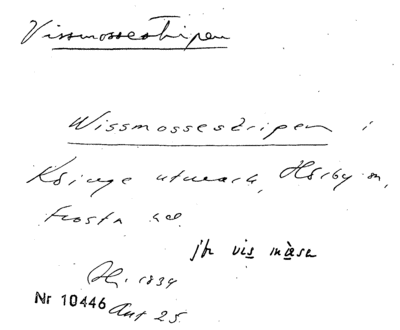 Vissmossestripen
Wissmossestripen i
Ksinge utmark, Hörby sn,
Frosta hd.
jfr vis måsen
1834
Nr 10446 Akt 25.